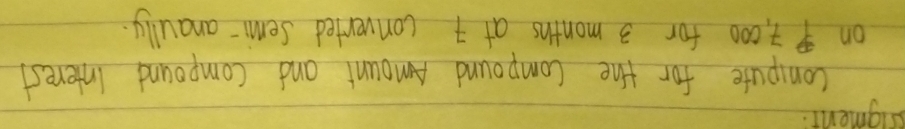 ssigment:
Compute for the Compound Amount and Compound Interest
on ₱ 7,000 for 3 months at 7 converted semi-anaully.